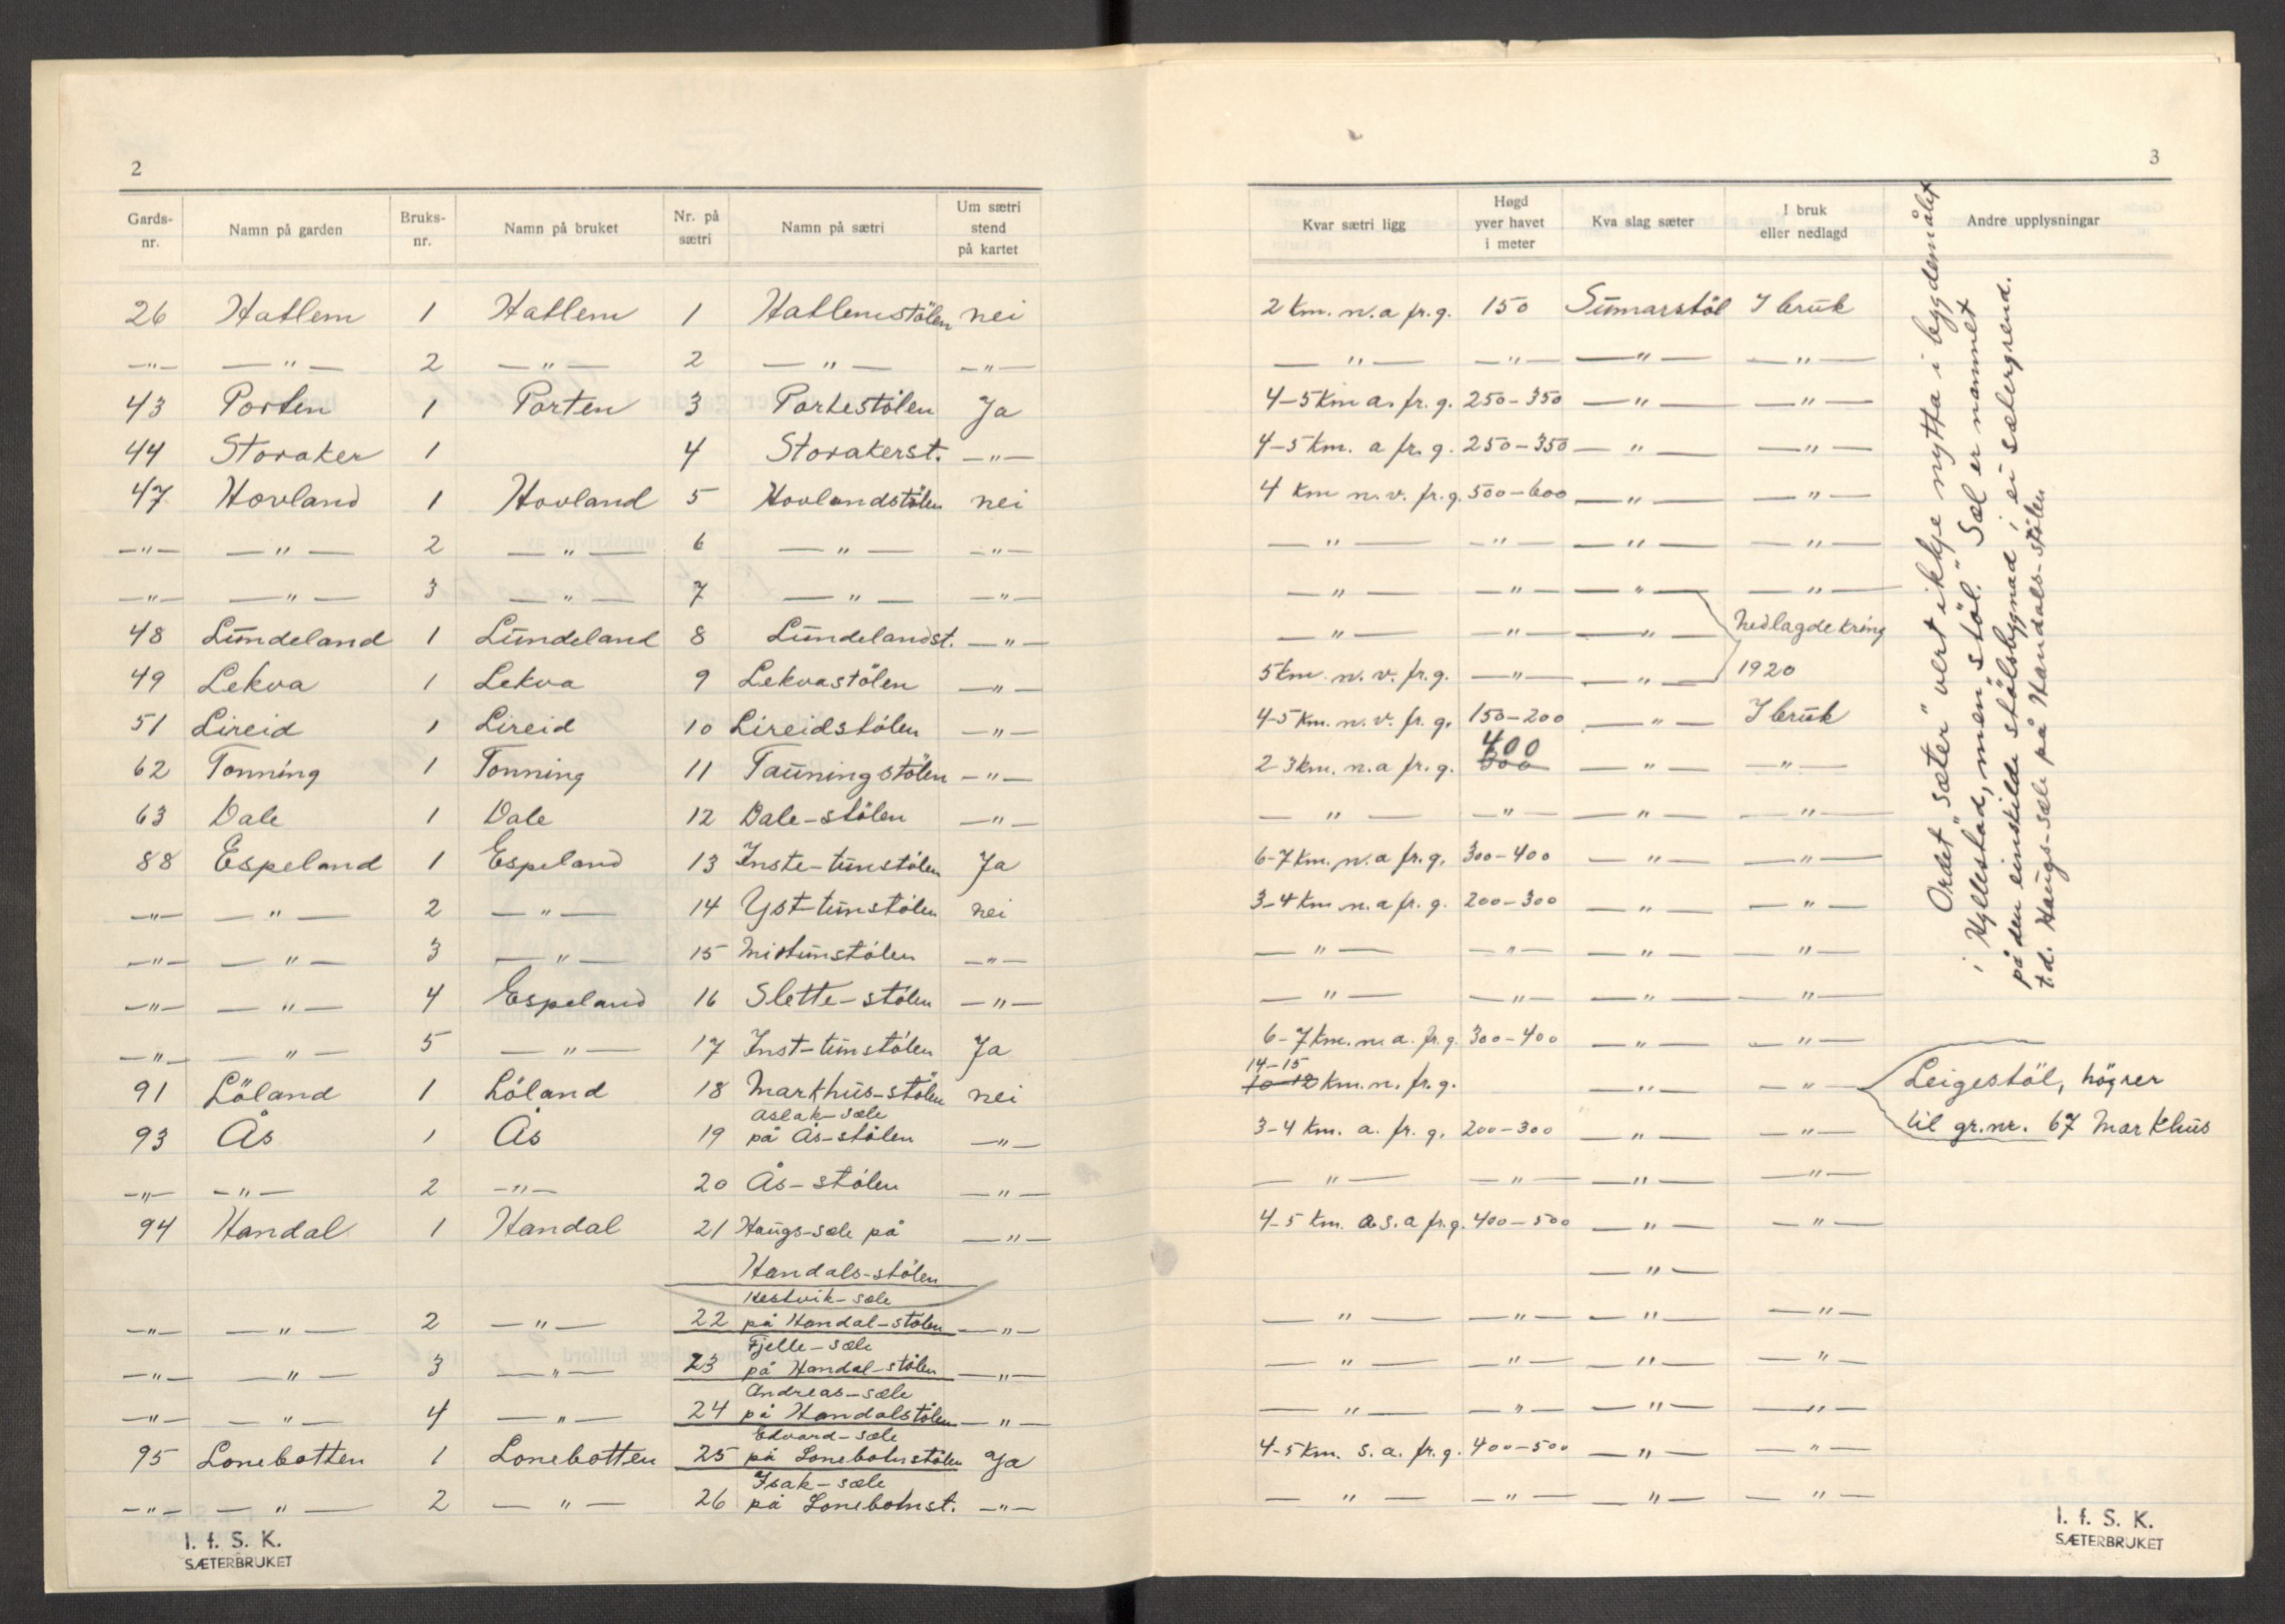 2
Gards-nr. Namn på garden Bruks-nr. Namn på bruket Nr. på sætri Namn på sætri Um sætri stend på kartet
26 Hatlem 1 Hatlem 1 Hatlemstölen nei
—"— —"— 2 —"— 2 —"— —"—
43 Porten 1 Porten 3 Portestölen Ja
44 Storaker 1 4 Storakerst. —"—
47 Hovland 1 Hovland 5 Hovlandstölen nei
—"— —"— 2 —"— 6 —"— —"—
—"— —"— 3 —"— 7 —"— —"—
48 Lündeland 1 Lündeland 8 Lündelandst. —"—
49 Lekva 1 Lekva 9 Lekvastölen —"—
51 Lireid 1 Lireid 10 Lireidstölen —"—
62 Tonning 1 Tonning 11 Taüningstölen —"—
63 Dale 1 Dale 12 Dale-stölen —"—
88 Espeland 1 Espeland 13 Inste-tünstölen Ja
—"— —"— 2 —"— 14 Yst-tünstölen nei
—"— —"— 3 —"— 15 Mistünstölen —"—
—"— —"— 4 Espeland 16 Slette-stölen —"—
—"— —"— 5 —"— 17 Inst-tünstölen Ja
91 Löland 1 Löland 18 Markhüs-stölen nei
Aslak-sæle
93 Ås 1 Ås 19 på Ås-stölen —"—
—"— —"— 2 —"— 20 Ås-stölen —"—
94 Handal 1 Handal 21 Haugs-sæle på —"—
Handals-stölen
Kestvik-sæle
—"— —"— 2 —"— 22 på Handal-stölen —"—
Fjelle-sæle
—"— —"— 3 —"— 23 på Handal-stölen —"—
Andreas-sæle
—"— —"— 4 —"— 24 på Handalstölen —"—
Edvard-sæle
95 Lonebotten 1 Lonebotten 25 på Lonebotnstölen Ja
Isak-sæle
—"— —"— 2 —"— 26 på Lonebotnst. —"—
I. f. S. K.
SÆTERBRUKET
3
Kvar sætri ligg Høgd yver havet i meter Kva slag sæter I bruk eller nedlagd Andre upplysningar
2 km. n.a fr.g. 150 Sümarstöl I brük
—"— —"— —"— —"—
4-5 km a. fr. g. 250-350 —"— —"—
4-5 km. a fr. g. 250-350 —"— —"—
4 km n. v. fr. g. 500-600 —"— —"—
—"— —"— —"— —"—
—"— —"— —"— —"—
—"— —"— —"— Nedlagde kring
5 km. n. v. fr. g. —"— —"— 1920
4-5 km. n. v. fr. g. 150-200 —"— I brük
400
2-3 km. n.a fr. g. 300 —"— —"—
—"— —"— —"— —"—
6-7 km. n.a fr. g. 300-400 —"— —"—
3-4 km n. a fr. g. 200-300 —"— —"—
—"— —"— —"— —"—
—"— —"— —"— —"—
6-7 km. n. a. fr. g. 300-400 —"— —"—
14-15
10-12 km. n. fr. g. —"— —"— Leigestöl, högrer
3-4 km. a. fr. g. 200-300 —"— —"— til gr.nr. 67 Markhüs
—"— —"— —"— —"—
4-5 km. a.s.a fr.g. 400-500 —"— —"—
—"—
—"— —"— —"— —"—
—"— —"— —"— —"—
—"— —"— —"— —"—
4-5 km. s. a. fr. g. 400-500 —"— —"—
—"— —"— —"— —"—
Ordet "sæter" vert ikkje nytta i bygdemålet
i Hyllestad, men "stöl." Sæl er namnet
på den einskilde stölsbygnad i ei sætergrend.
t.d. Haugs-sæle på Handals-stölen
I. f. S. K.
SÆTERBRUKET